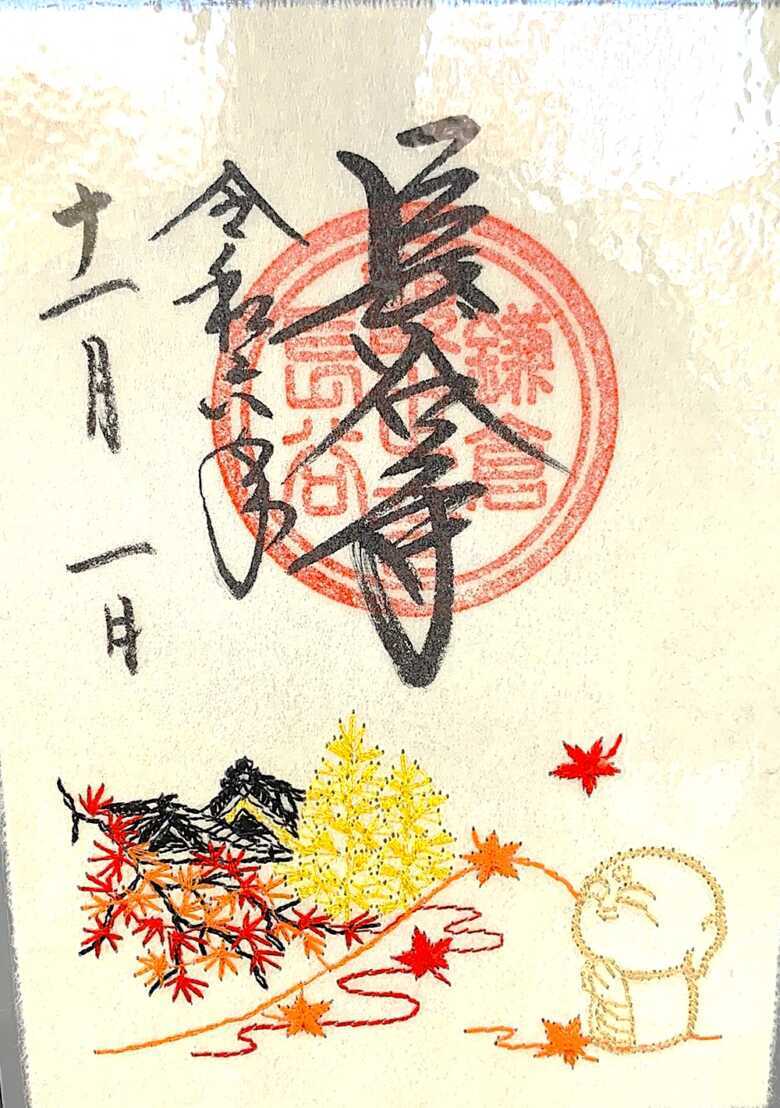 長谷寺
令和六年
十一月一日
鎌倉
長谷